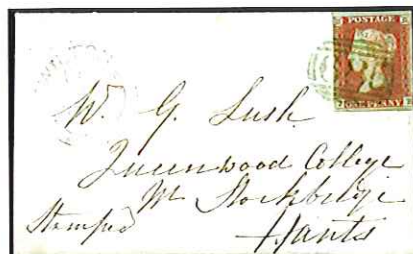 POSTAGE
ONE PENNY
W. G. Lush
Queenwood College
Nr Stockbridge
Stamped Hants